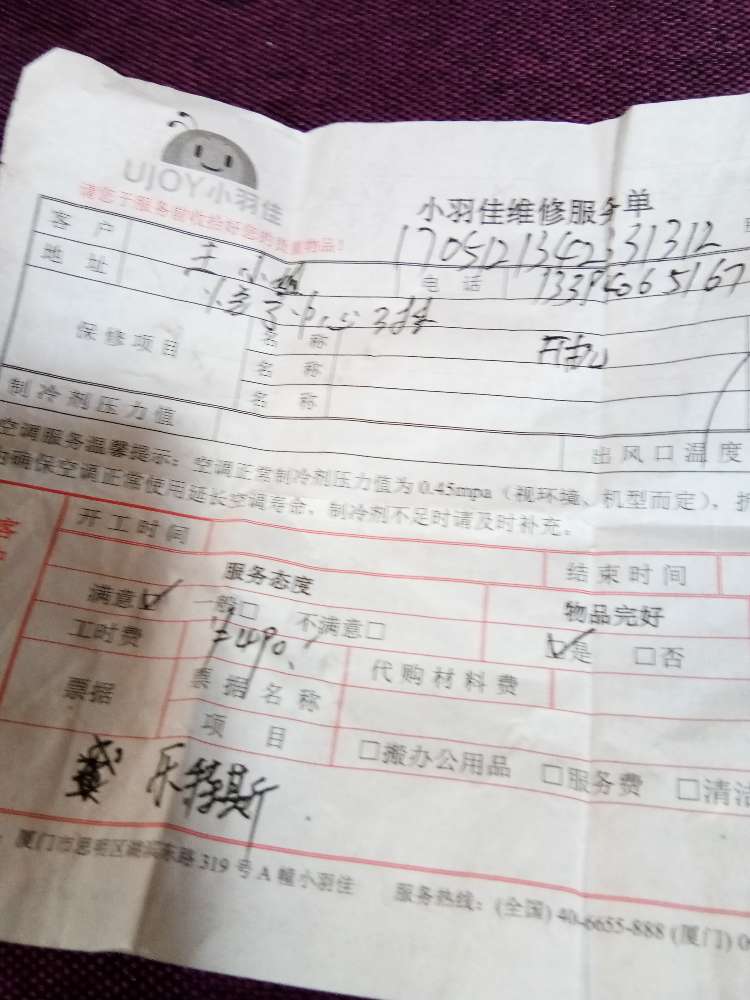 UJOY小羽佳
小羽佳维修服务单
请您于服务前收捡好您的贵重物品！
1705121342331312
客 户 王小
电 话 13394065167
地 址
保修项目 名 称
名 称
名 称
制冷剂压力值 出风口温度
空调服务温馨提示：空调正常制冷剂压力值为 0.45mpa（视环境、机型而定），
确保空调正常使用延长空调寿命，制冷剂不足时请及时补充。
开工时间 结束时间
服务态度 物品完好
满意☑ 一般□ 不满意□ ☑是 □否
工时费 490 代购材料费
票据 票据名称
项 目 □搬办公用品 □服务费 □清洁
乐特斯
厦门市思明区湖滨东路 319 号 A 幢小羽佳 服务热线：(全国) 40-6655-888 (厦门) 0